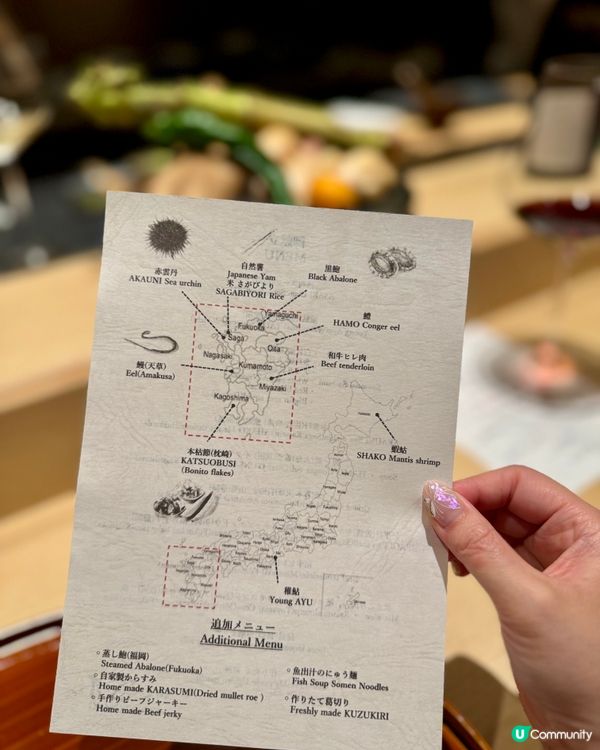 赤雲丹
AKAUNI Sea urchin
自然薯
Japanese Yam
米 さがびより
SAGABIYORI Rice
黒鮑
Black Abalone
鱧
HAMO Conger eel
和牛ヒレ肉
Beef tenderloin
鰻(天草)
Eel(Amakusa)
Yamaguchi
Fukuoka
Saga
Oita
Nagasaki
Kumamoto
Miyazaki
Kagoshima
本枯節(枕崎)
KATSUOBUSI
(Bonito flakes)
蝦蛄
SHAKO Mantis shrimp
稚鮎
Young AYU
追加メニュー
Additional Menu
◦蒸し鮑(福岡)
Steamed Abalone(Fukuoka)
◦自家製からすみ
Home made KARASUMI(Dried mullet roe )
◦手作りビーフジャーキー
Home made Beef jerky
◦魚出汁のにゅう麺
Fish Soup Somen Noodles
◦作りたて葛切り
Freshly made KUZUKIRI
U Community